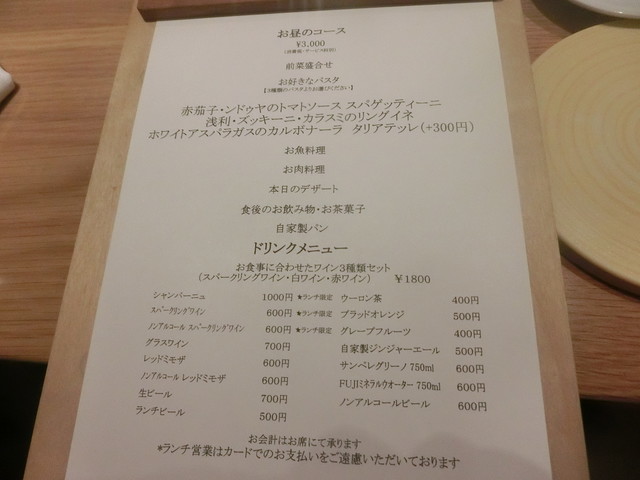 お昼のコース
¥3,000
(消費税・サービス料別)
前菜盛合せ
お好きなパスタ
【3種類のパスタよりお選びください】
赤茄子・ンドゥヤのトマトソース スパゲッティーニ
浅利・ズッキーニ・カラスミのリングイネ
ホワイトアスパラガスのカルボナーラ タリアテッレ(+300円)
お魚料理
お肉料理
本日のデザート
食後のお飲み物・お茶菓子
自家製パン
ドリンクメニュー
お食事に合わせたワイン3種類セット
(スパークリングワイン・白ワイン・赤ワイン) ¥1800
シャンパーニュ 1000円 ★ランチ限定
スパークリングワイン 600円 ★ランチ限定
ノンアルコール スパークリングワイン 600円 ★ランチ限定
グラスワイン 700円
レッドミモザ 600円
ノンアルコール レッドミモザ 600円
生ビール 700円
ランチビール 500円
ウーロン茶 400円
ブラッドオレンジ 500円
グレープフルーツ 400円
自家製ジンジャーエール 500円
サンペレグリーノ 750ml 600円
FUJIミネラルウオーター 750ml 600円
ノンアルコールビール 600円
お会計はお席にて承ります
*ランチ営業はカードでのお支払いをご遠慮いただいております